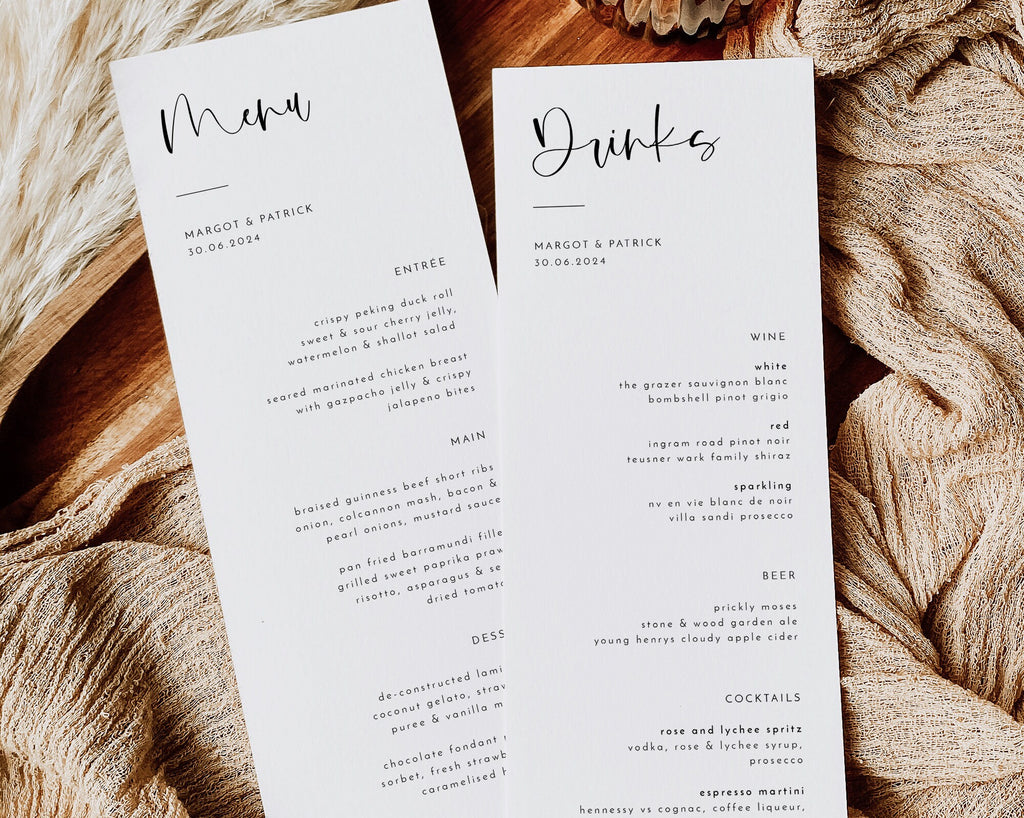 Menu
MARGOT & PATRICK
30.06.2024
ENTRÉE
crispy peking duck roll
sweet & sour cherry jelly,
watermelon & shallot salad
seared marinated chicken breast
with gazpacho jelly & crispy
jalapeno bites
MAIN
braised guinness beef short ribs
onion, colcannon mash, bacon &
pearl onions, mustard sauce
pan fried barramundi
grilled sweet paprika
risotto, asparagus &
dried
de-constructed
coconut gelato,
puree & vanilla
chocolate fondant
sorbet, fresh
caramelised
Drinks
MARGOT & PATRICK
30.06.2024
WINE
white
the grazer sauvignon blanc
bombshell pinot grigio
red
ingram road pinot noir
teusner wark family shiraz
sparkling
nv en vie blanc de noir
villa sandi prosecco
BEER
prickly moses
stone & wood garden ale
young henrys cloudy apple cider
COCKTAILS
rose and lychee spritz
vodka, rose & lychee syrup,
prosecco
espresso martini
hennessy vs cognac, coffee liqueur,